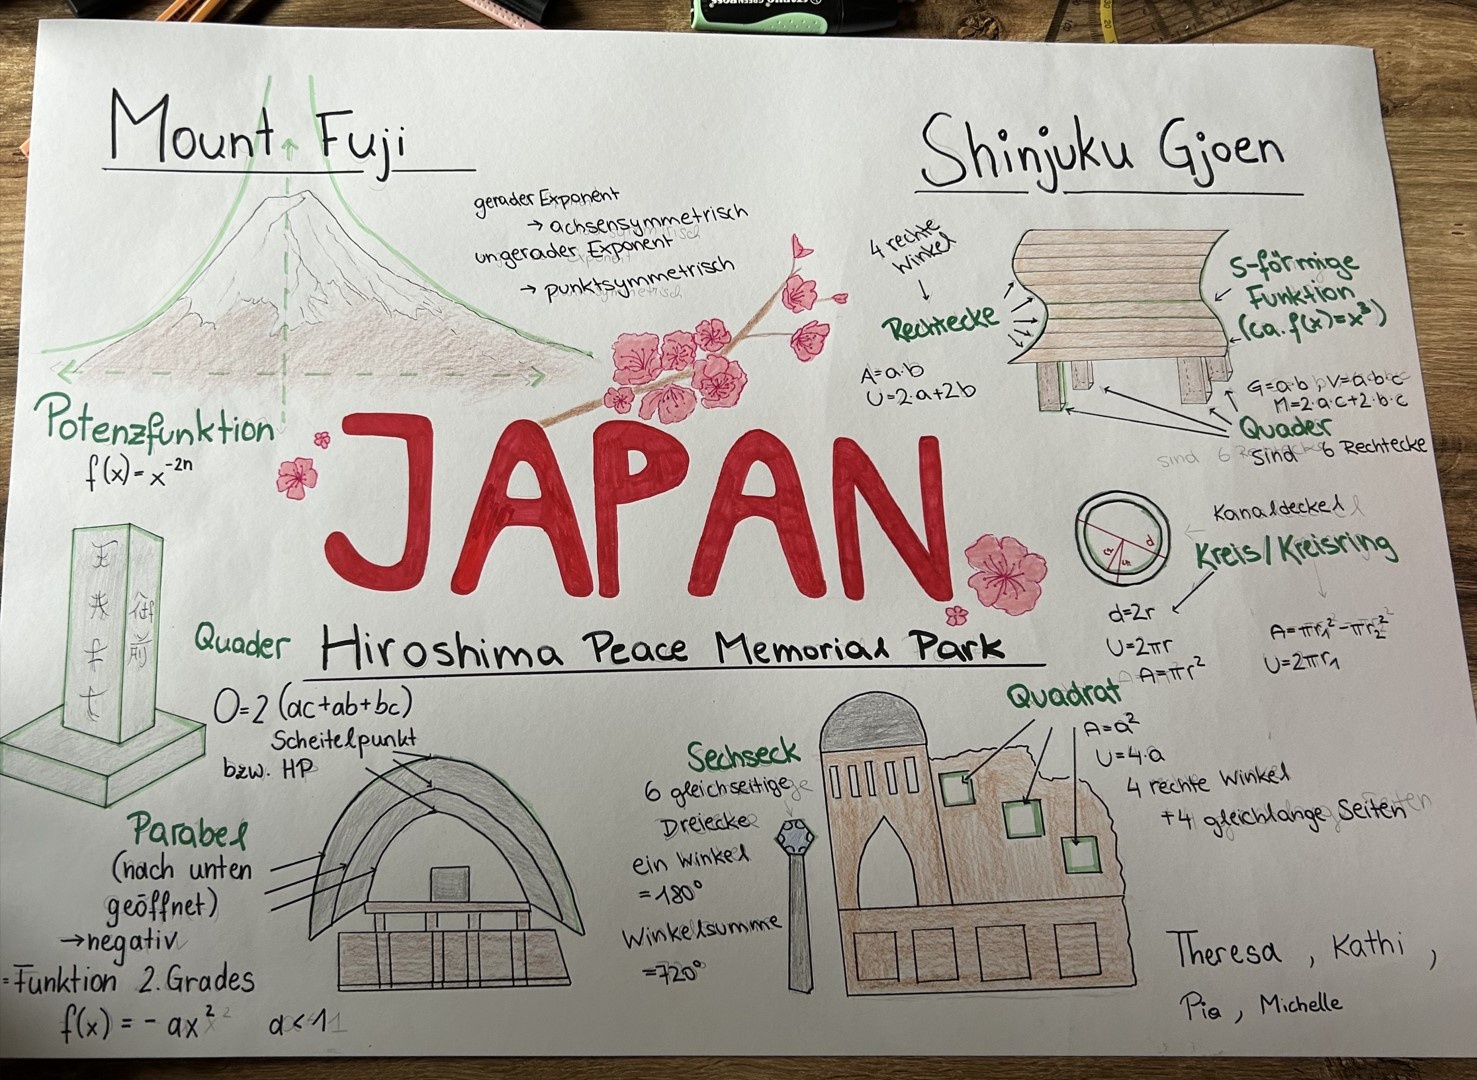 Mount Fuji
gerader Exponent
→ achsensymmetrisch
ungerader Exponent
→ punktsymmetrisch
Potenzfunktion
f(x) = x⁻²ⁿ
Shinjuku Gjoen
4 rechte
Winkel
Rechtecke
A=a·b
U=2·a+2b
S-förmige
Funktion
(ca. f(x)=x³)
G=a·b, V=a·b·c
M=2·a·c+2·b·c
Quader
sind 6 Rechtecke
JAPAN
Kanaldeckel
Kreis/Kreisring
d
d=2r
U=2πr
A=πr²
A=πr₁²-πr₂²
U=2πr₁
Hiroshima Peace Memorial Park
Quader
O=2 (ac+ab+bc)
Scheitelpunkt
bzw. HP
Parabel
(nach unten
geöffnet)
→negativ
=Funktion 2. Grades
f(x) = - ax² a<1
Sechseck
6 gleichseitige
Dreiecke
ein Winkel
=180°
Winkelsumme
=720°
Quadrat
A=a²
U=4·a
4 rechte Winkel
+4 gleichlange Seiten
Theresa, Kathi,
Pia, Michelle